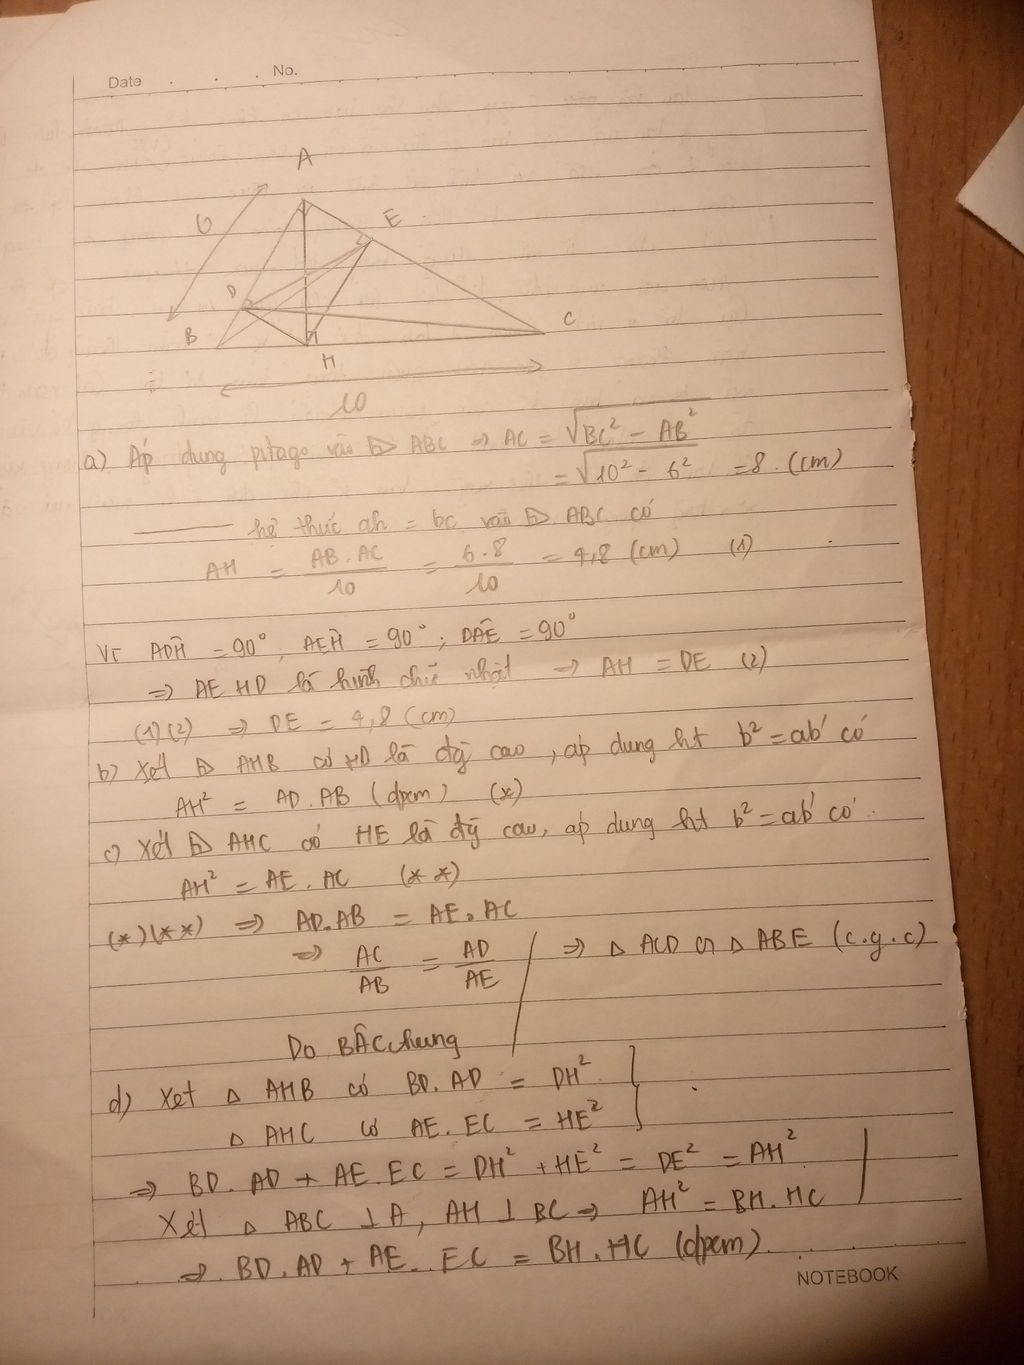 Date . . . No.
A
6
E
D
B
C
H
10
a) Áp dụng pitago vào ⊿ ABC => AC = √BC² - AB²
= √10² - 6² = 8 (cm)
hệ thức ah = bc vào ⊿ ABC có
AH = AB.AC / 10 = 6.8 / 10 = 4,8 (cm) (1)
Vì ADH̑ = 90°, AEH̑ = 90°; DAȆ = 90°
=> AEHD là hình chữ nhật => AH = DE (2)
(1)(2) => DE = 4,8 (cm)
b) Xét ⊿ AHB có HD là đg̀ cao, áp dụng ht b² = ab' có
AH² = AD.AB (đpcm) (*)
c) Xét ⊿ AHC có HE là đg̀ cao, áp dụng ht b² = ab' có
AH² = AE.AC (**)
(*)(**) => AD.AB = AE.AC
=> AC/AB = AD/AE => Δ ACD ∽ Δ ABE (c.g.c)
Do BÂC chung
d) Xét Δ AHB có BD.AD = DH²
Δ AHC có AE.EC = HE²
=> BD.AD + AE.EC = DH² + HE² = DE² = AH²
Xét Δ ABC ⊥ A, AH ⊥ BC => AH² = BH.HC
=> BD.AD + AE.EC = BH.HC (đpcm)
NOTEBOOK